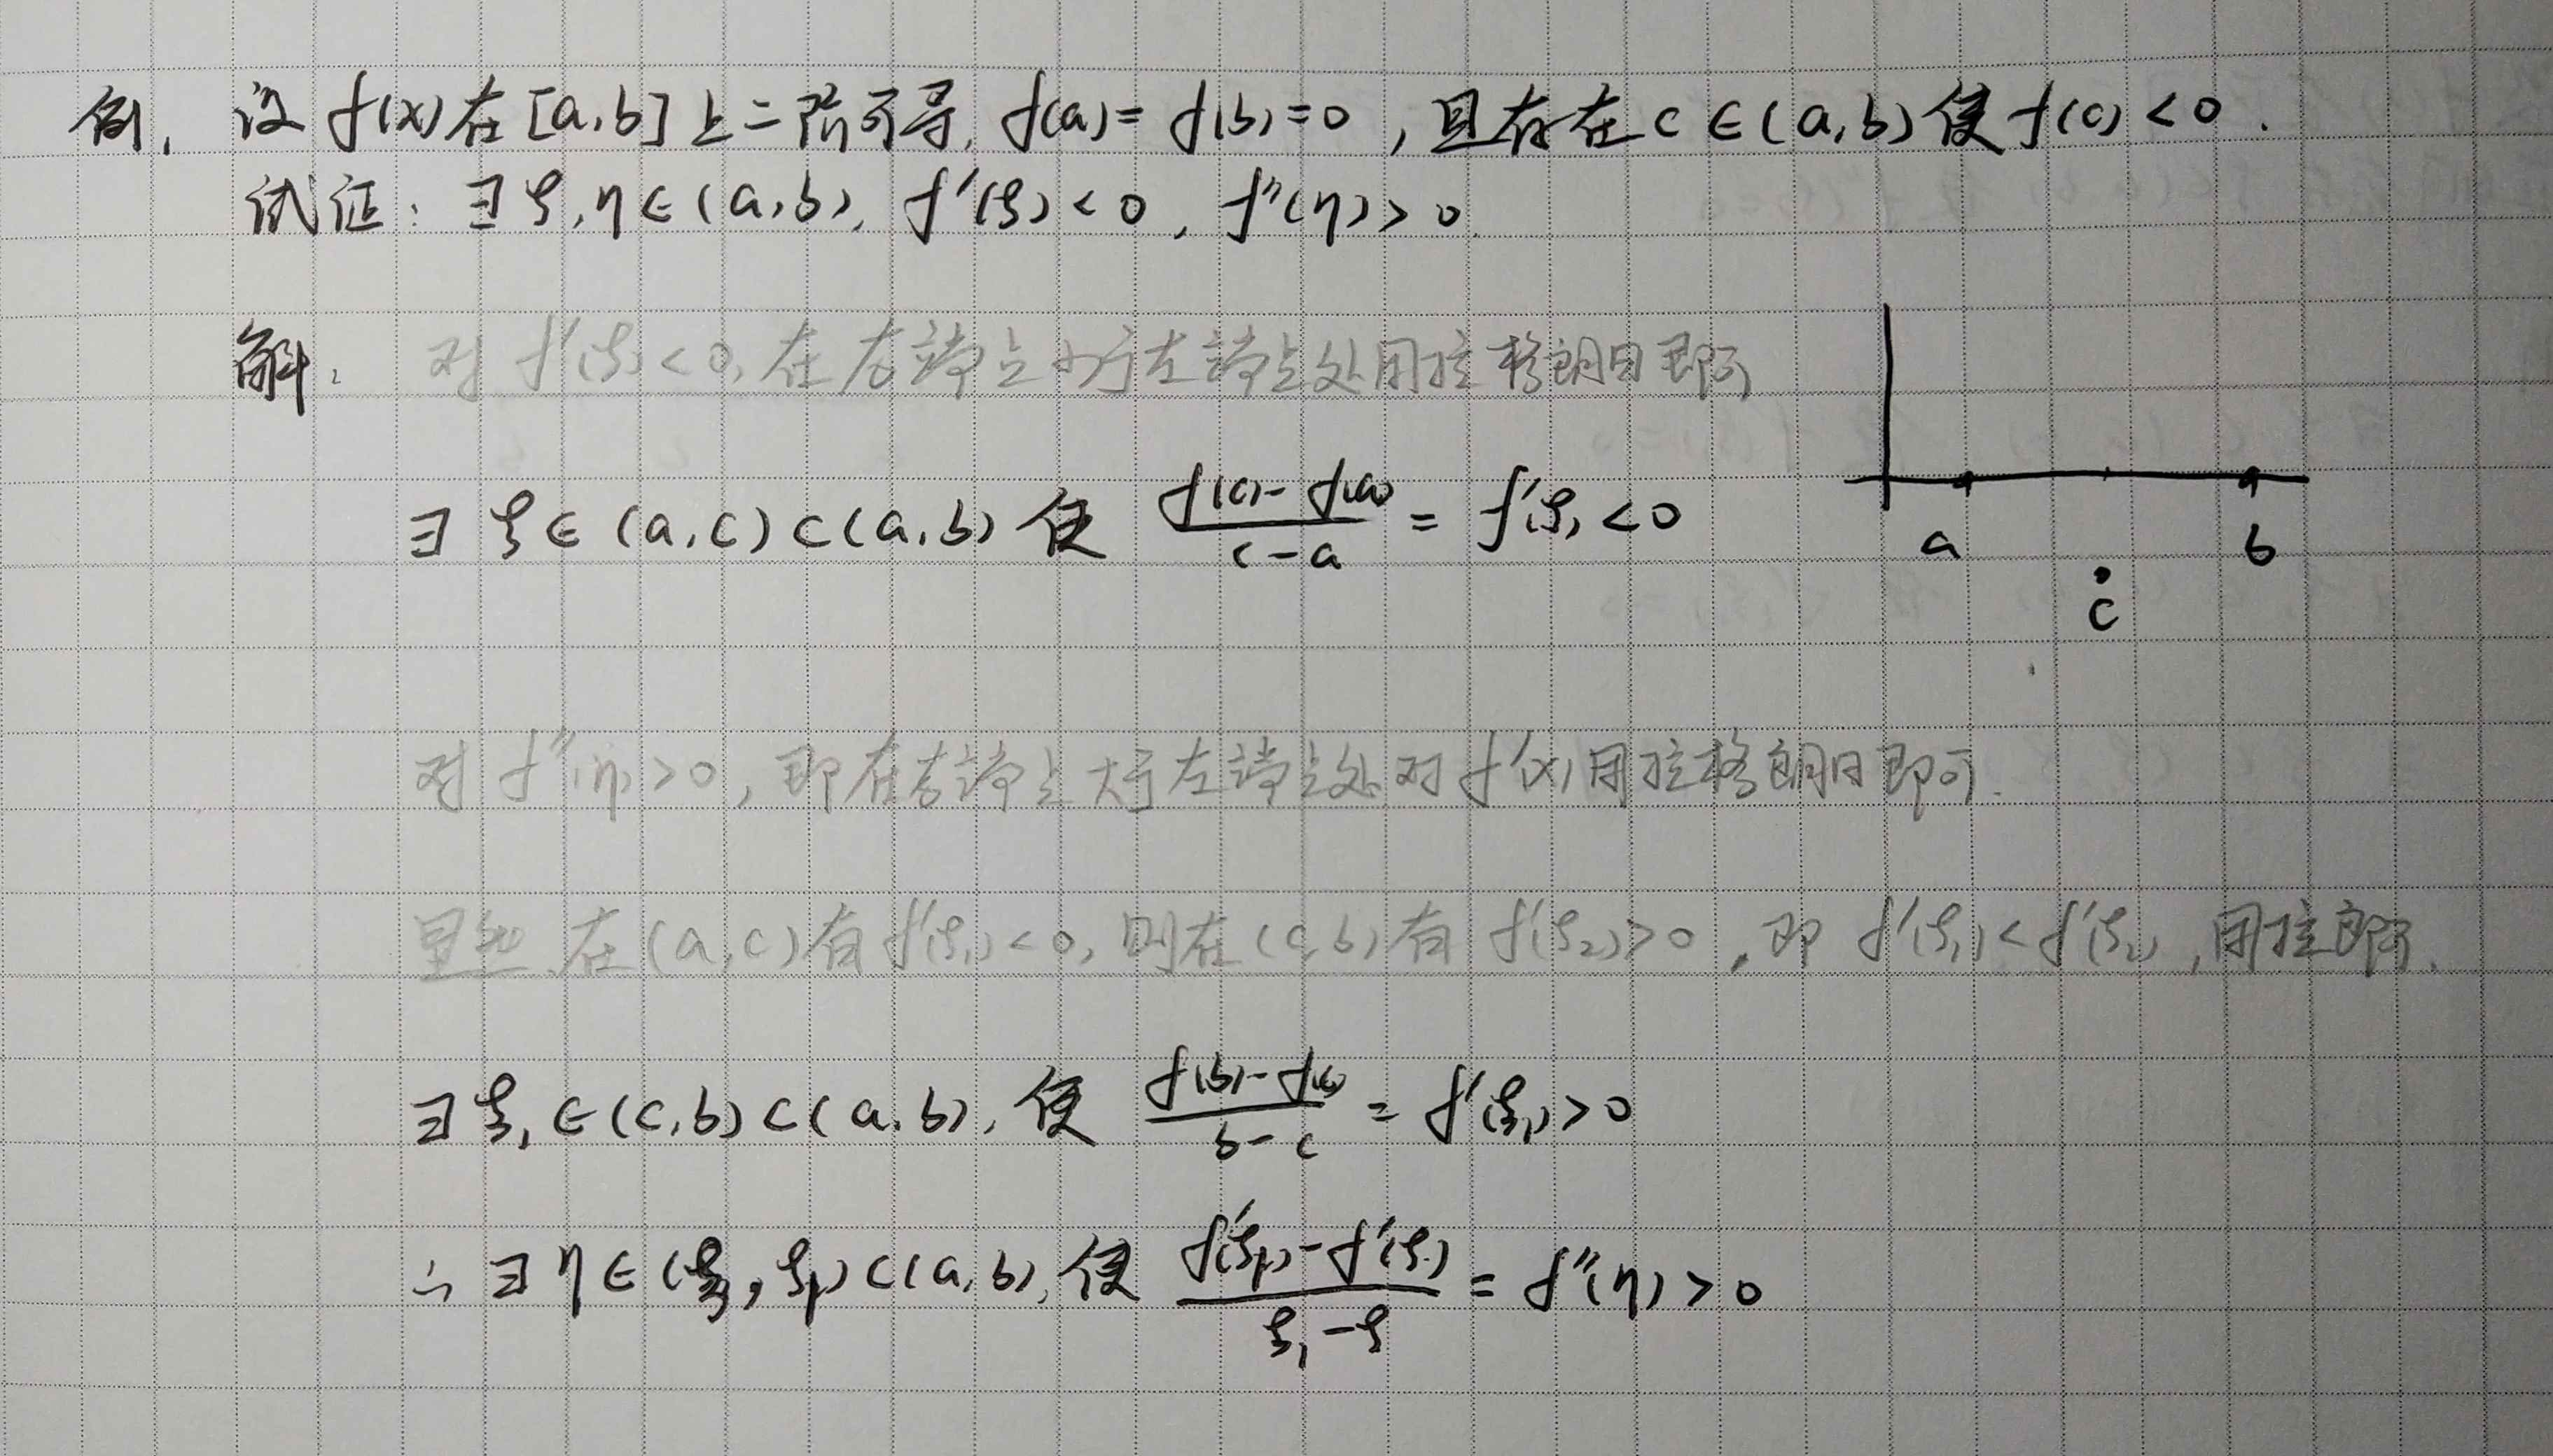 例. 设 f(x) 在 [a,b] 上二阶可导, f(a) = f(b) = 0 , 且存在 c ∈ (a,b) 使 f(c) < 0 .
试证: ∃ ξ,η ∈ (a,b), f'(ξ) < 0 , f''(η) > 0.
解: 对 f'(ξ) < 0, 在右端点小于左端点处用拉格朗日即可
∃ ξ ∈ (a,c) ⊂ (a,b) 使 (f(c) - f(a))/(c - a) = f'(ξ) < 0
a b
c
对 f''(η) > 0 , 即在右端点大于左端点处对 f'(x) 用拉格朗日即可.
在 (a,c) 有 f'(ξ₁) < 0, 则在 (c,b) 有 f'(ξ₂) > 0 , 即 f'(ξ₁) < f'(ξ₂) , 用拉即可.
∃ ξ₁ ∈ (c,b) ⊂ (a,b), 使 (f(b) - f(c))/(b - c) = f'(ξ₁) > 0
∴ ∃ η ∈ (ξ, ξ₁) ⊂ (a,b), 使 (f'(ξ₁) - f'(ξ))/(ξ₁ - ξ) = f''(η) > 0